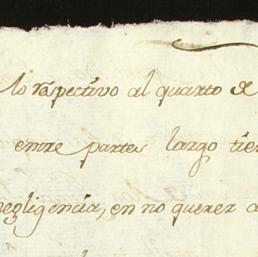 lo respectivo al quarto de
entre partes largo tie
negligencia, en no querer